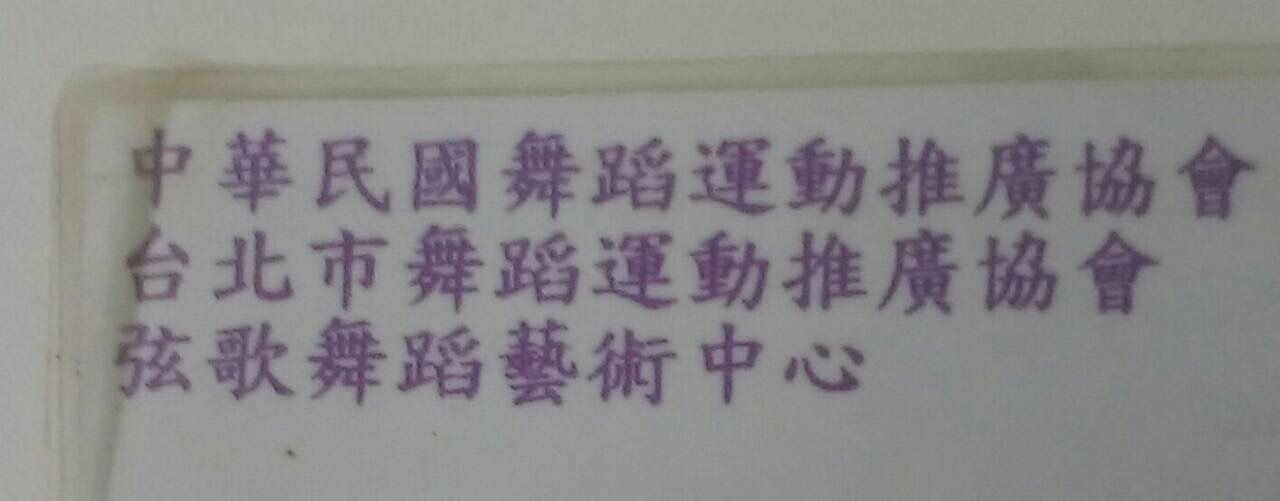 中華民國舞蹈運動推廣協會
台北市舞蹈運動推廣協會
弦歌舞蹈藝術中心